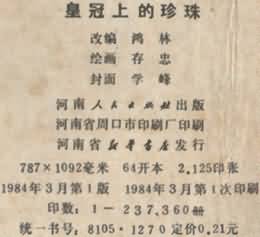 皇冠上的珍珠
改编 鸿林
绘画 存忠
封面 学峰
河南人民出版社出版
河南省周口市印刷厂印刷
河南省新华书店发行
787×1092毫米 64开本 2.125印张
1984年3月第1版 1984年3月第1次印刷
印数：1—237,360册
统一书号：8105·1270 定价0.21元